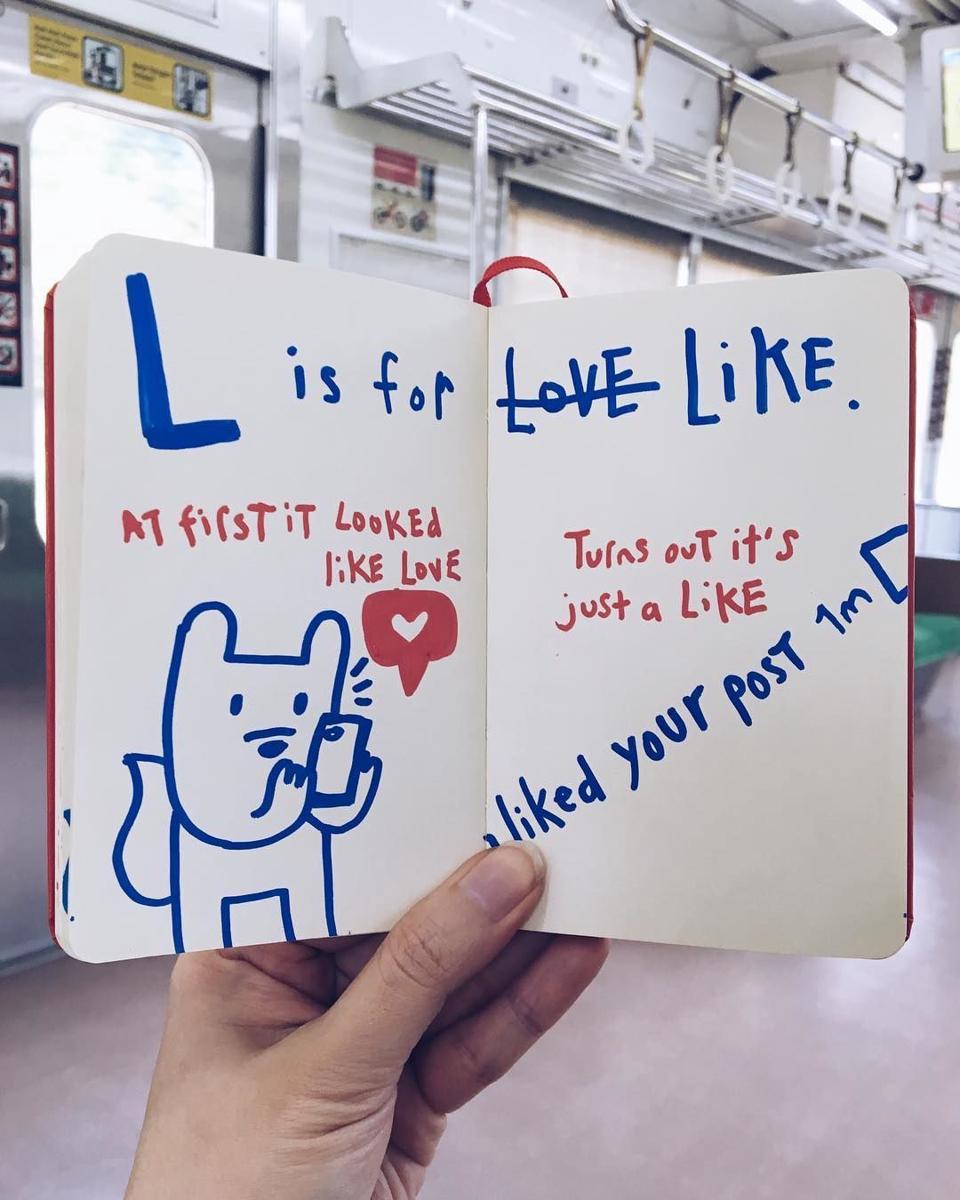 L is for LOVE LiKE.
AT fiRST iT LOOKED
liKE LOVE
Turns ouT it's
just a LiKE
liked your post 1m